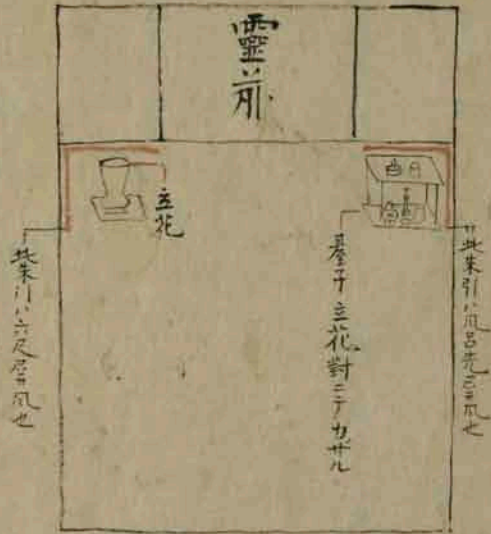 靈前
〃此朱引ハ風呂先屏風也
臺子立花對ニテカザル
立花
此朱引ハ六尺屏風也